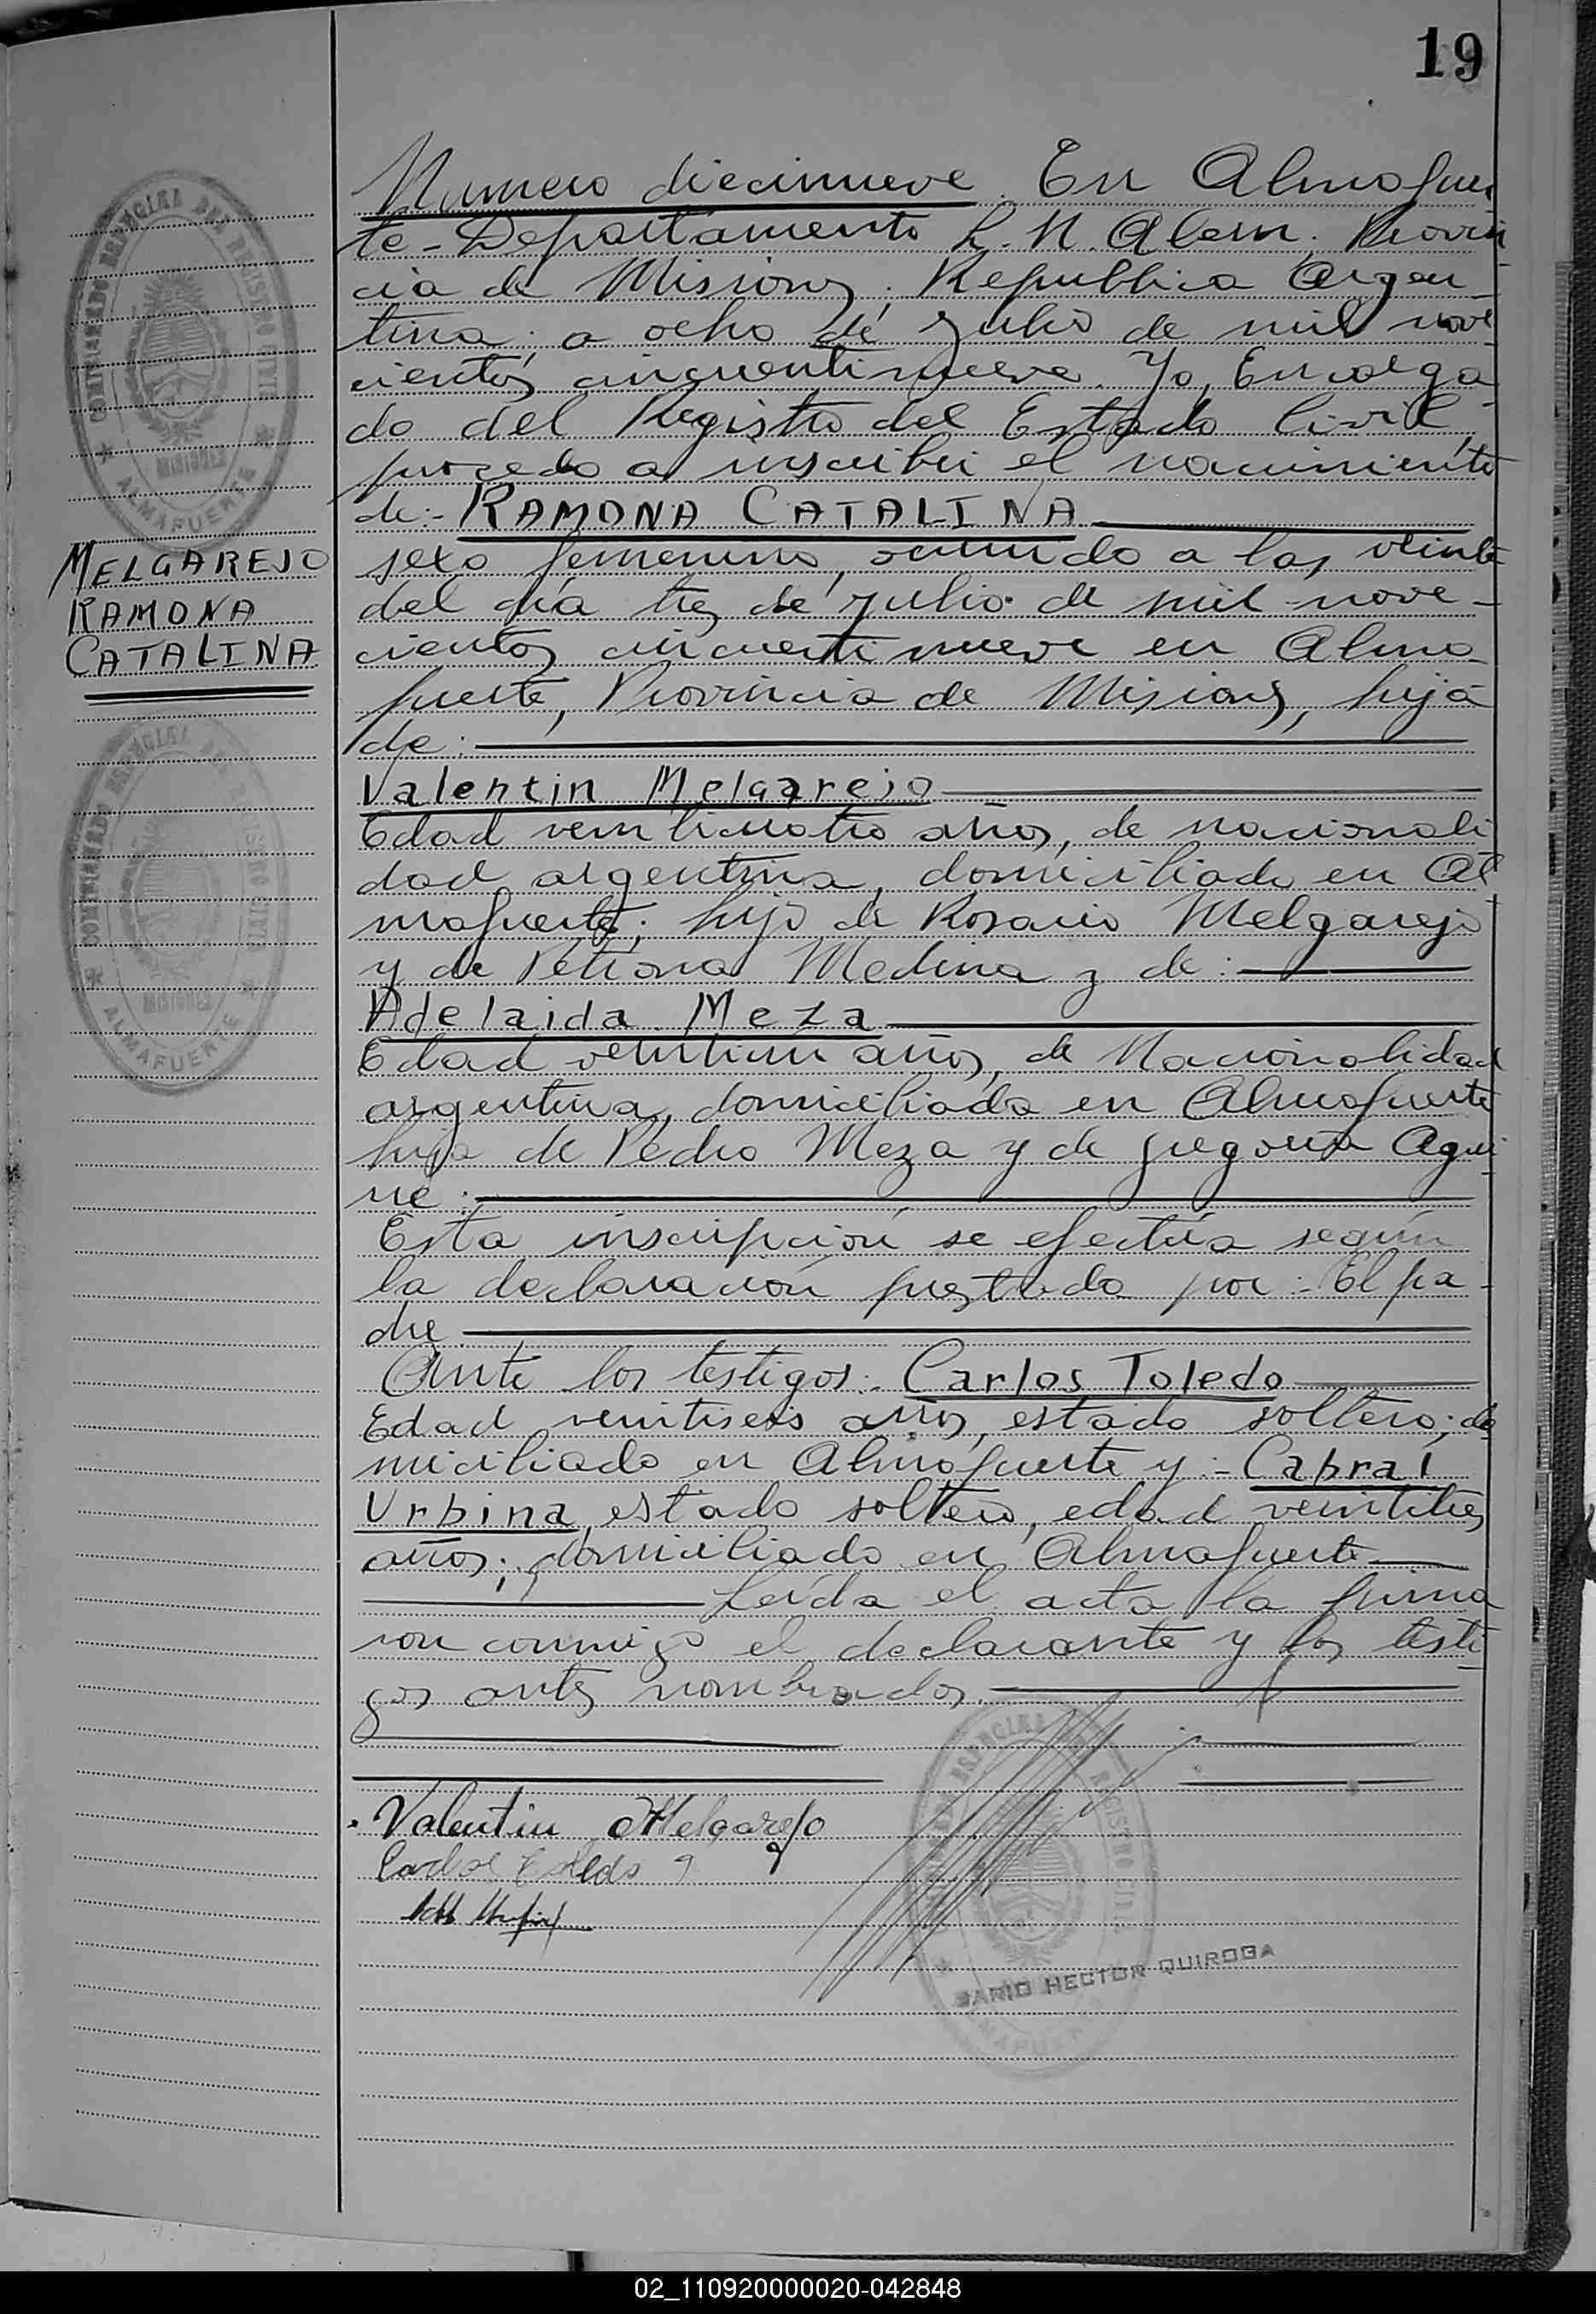 19
Numero diecinueve. En Almafuer
te-Departamento L. N. Alem; Provin
cia de Misiones; Republica Argen-
tina; a ocho de Julio de mil nove
cientos cincuentinueve. Yo, Encarga
do del Registro del Estado Civil,
procedo a inscribir el nacimiento
de:- RAMONA CATALINA
sexo femenino, ocurrido a las veinte
del día tres de Julio de mil nove-
cientos cincuentinueve en Alma-
fuerte, Provincia de Misiones, hija
de:
Valentin Melgarejo
Edad veinticuatro años, de nacionali
dad argentina, domiciliado en Al
mafuerte; hijo de Rosario Melgarejo
y de Petrona Medina y de:
Adelaida Meza
Edad veintiun años, de Nacionalidad
argentina, domiciliada en Almafuerte
hija de Pedro Meza y de Gregoria Agui
rre:
Esta inscripción se efectúa según
la declaración prestada por: El pa-
dre
Ante los testigos:- Carlos Toledo
Edad veintiseis años, estado soltero; do
miciliado en Almafuerte y:- Cabral
Urbina, estado soltero, edad veintitres
años; domiciliado en Almafuerte
Leída el acta la firma
ron conmigo el declarante y los testi-
gos antes nombrados.
MELGAREJO
RAMONA
CATALINA
Valentin Melgarejo
Carlos Toledo
REGISTRO CIVIL
ALMAFUERTE
REGISTRO CIVIL
ALMAFUERTE
REGISTRO CIVIL
HECTOR QUIROGA
02_110920000020-042848